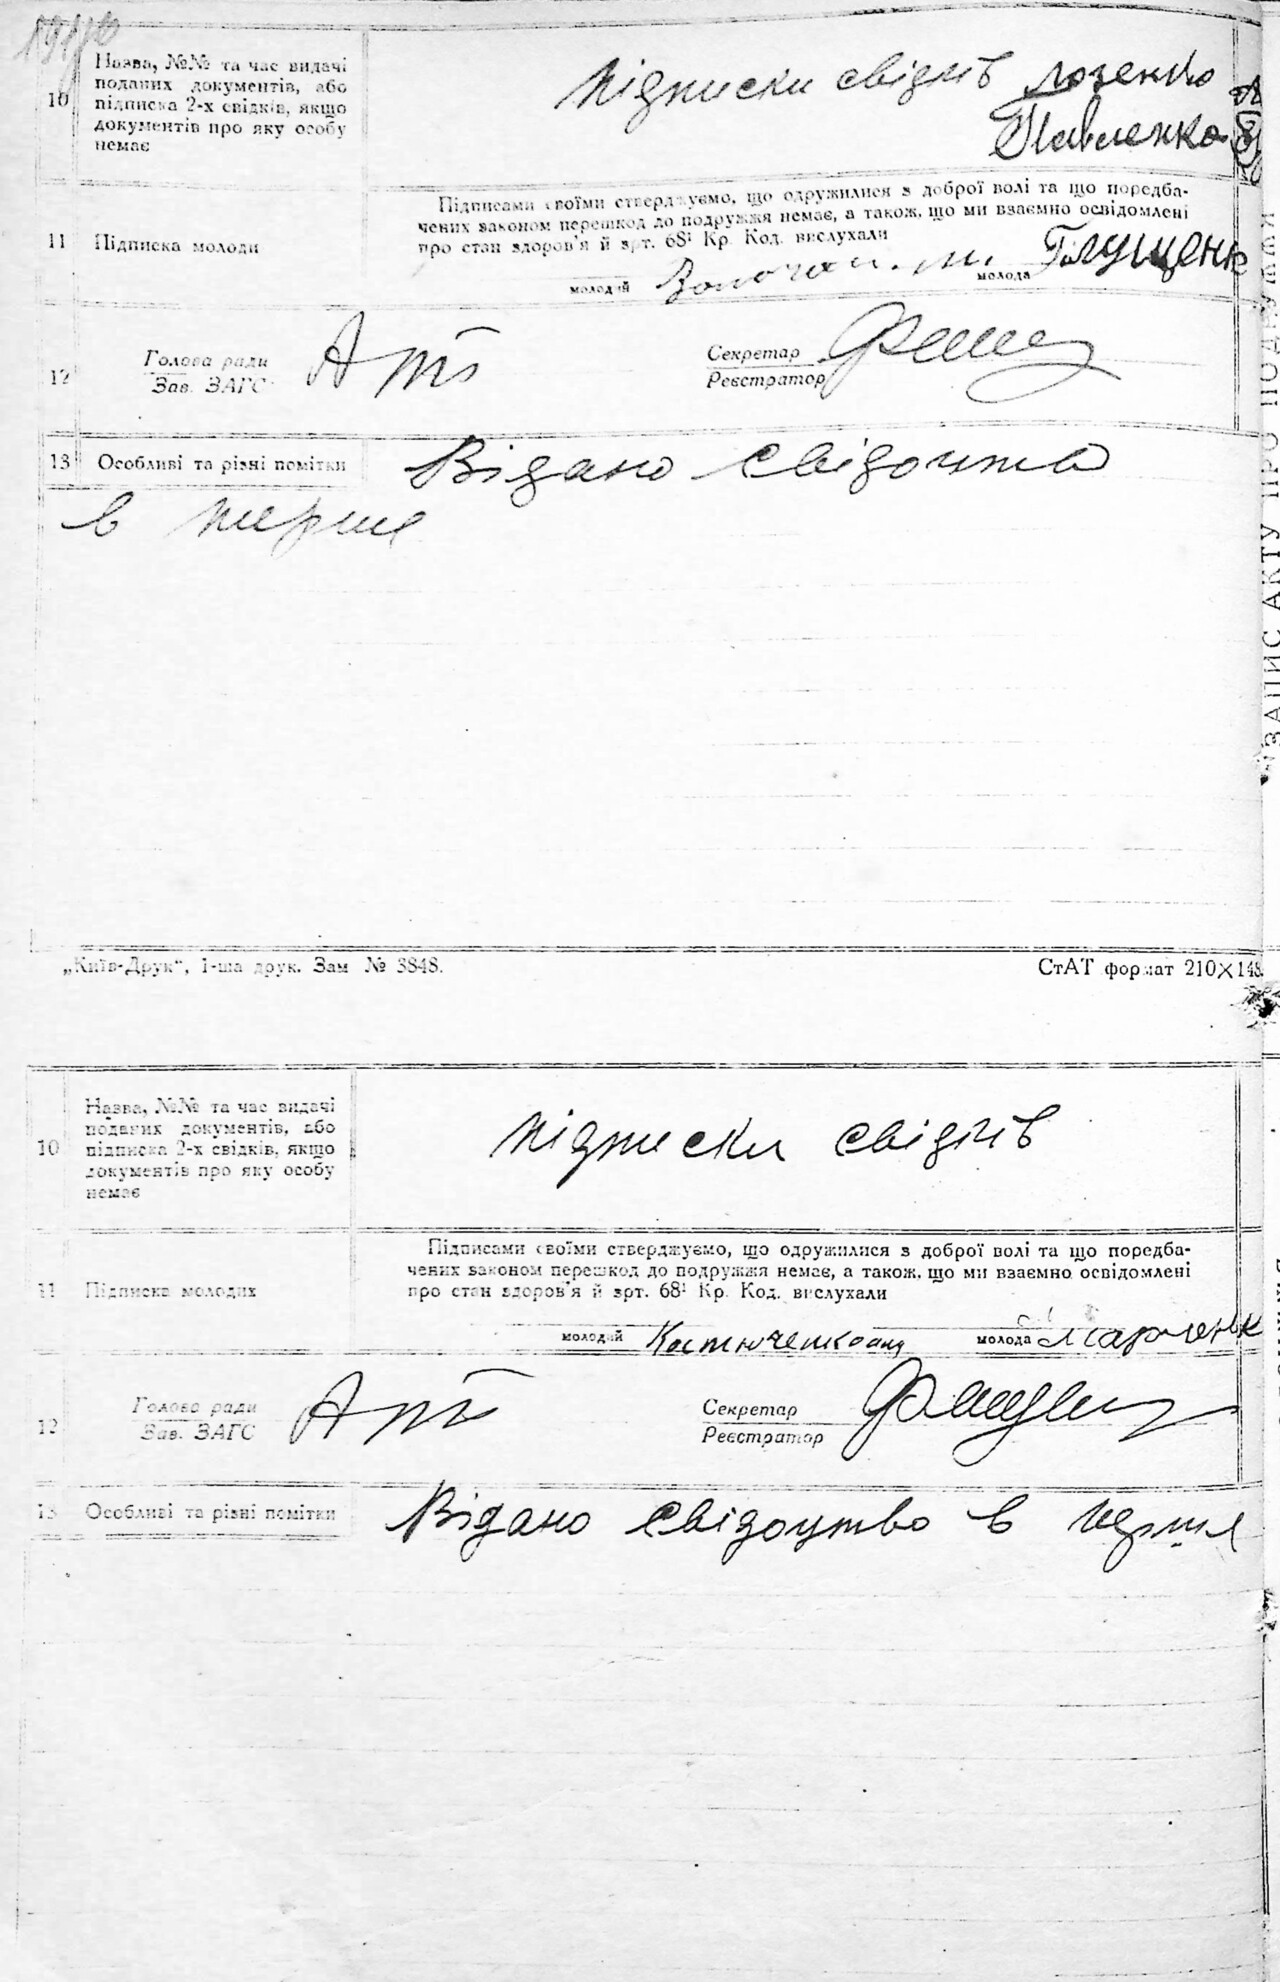 10
Назва, №№ та час видачі
поданих документів, або
підписка 2-х свідків, якщо
документів про яку особу
немає
підписки свідків
Павленко
11 Підписка молоди
Підписами своїми стверджуємо, що одружилися з доброї волі та що передба-
чених законом перешкод до подружжя немає, а також, що ми взаємно освідомлені
про стан здоров'я й арт. 68¹ Кр. Код. вислухали
молодий молода Глущенк
12
Голова ради
Зав. ЗАГС
Секретар
Реєстратор
13 Особливі та різні помітки Відано свідоцтво
в перше
ЗАПИС АКТУ ПРО ПОДРУЖЖЯ
„Київ-Друк“, 1-ша друк. Зам № 3848. СтАТ формат 210×148
10
Назва, №№ та час видачі
поданих документів, або
підписка 2-х свідків, якщо
документів про яку особу
немає
підписки свідків
11 Підписка молодих
Підписами своїми стверджуємо, що одружилися з доброї волі та що передба-
чених законом перешкод до подружжя немає, а також, що ми взаємно освідомлені
про стан здоров'я й арт. 68¹ Кр. Код. вислухали
молодий молода Марченк
12
Голова ради
Зав. ЗАГС
Секретар
Реєстратор
13 Особливі та різні помітки Відано свідоцтво в перше